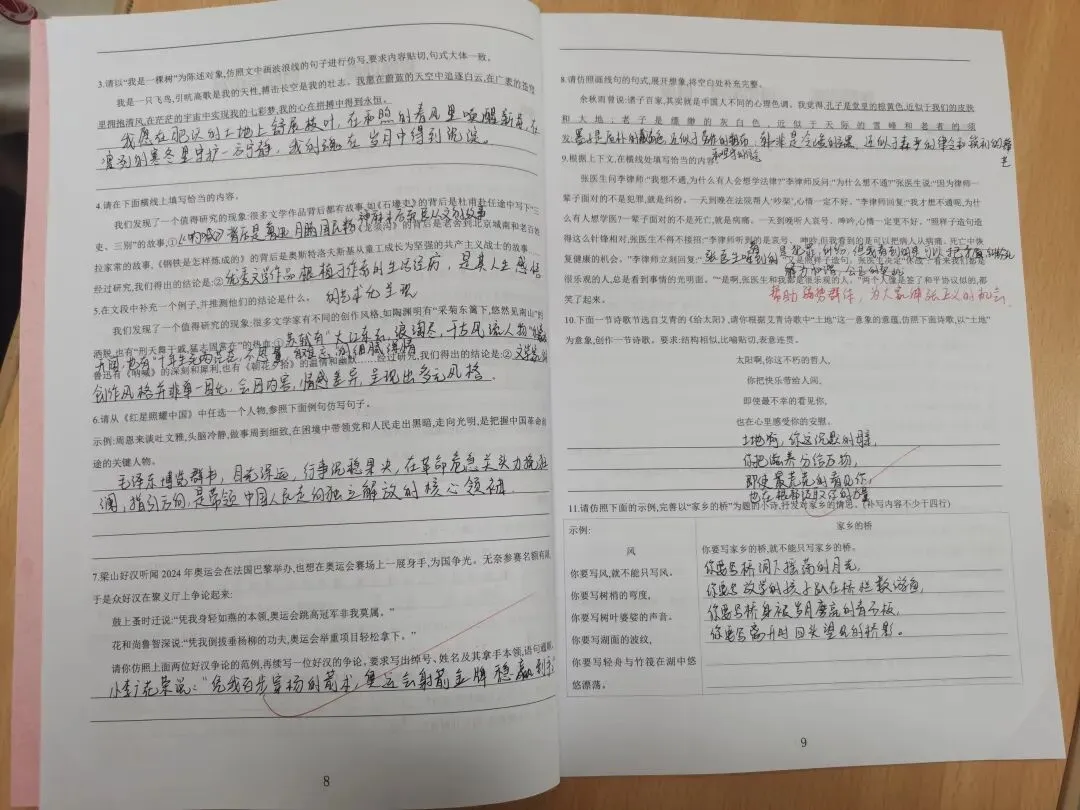 3.请以“我是一棵树”为陈述对象,仿照文中画波浪线的句子进行仿写,要求内容贴切,句式大体一致。
我是一只飞鸟,引吭高歌是我的天性,搏击长空是我的壮志。我愿在蔚蓝的天空中追逐白云,在广袤的苍穹
里拥抱清风,在茫茫的宇宙中实现我的七彩梦,我的心在拼搏中得到永恒。
我愿在肥沃的土地上舒展枝叶,在和煦的春风里唤醒新芽,在
凛冽的寒冬里守护一方宁静,我的魂在岁月中得到沉淀。
4.请在下面横线上填写恰当的内容。
我们发现了一个值得研究的现象:很多文学作品背后都有故事,如《石壕吏》的背后是杜甫赴任途中写下“三
吏、三别”的故事,①《呐喊》背后是鲁迅
弃医从文的故事
《龙须沟》的背后是老舍到北京城南和老百姓
拉家常的故事,《钢铁是怎样炼成的》的背后是奥斯特洛夫斯基从童工成长为坚强的共产主义战士的故事……
经过研究,我们得出的结论是:②优秀文学作品根植于作者的生活经历,是其人生感悟
的艺术化呈现
5.在文段中补充一个例子,并推测他们的结论是什么。
我们发现了一个值得研究的现象:很多文学家有不同的创作风格,如陶渊明有“采菊东篱下,悠然见南山”的
洒脱,也有“刑天舞干戚,猛志固常在”的热血;①苏轼有“大江东去,浪淘尽,千古风流人物”的
也有“十年生死两茫茫,不思量,自难忘”的细腻
鲁迅有《呐喊》的深刻和犀利,也有《朝花夕拾》的温情和幽默……经过研究,我们得出的结论是:②文学家的
创作风格并非单一固化,会因内容,情感差异,呈现出多元风格.
6.请从《红星照耀中国》中任选一个人物,参照下面例句仿写句子。
示例:周恩来谈吐文雅,头脑冷静,做事周到细致,在困境中带领党和人民走出黑暗,走向光明,是把握中国革命前
途的关键人物。
毛泽东博览群书,目光深远,行事沉稳果决,在革命危急关头力挽狂
澜,指引方向,是带领中国人民走向独立解放的核心领袖.
7.梁山好汉听闻 2024 年奥运会在法国巴黎举办,也想在奥运会赛场上一展身手,为国争光。无奈参赛名额有限,
于是众好汉在聚义厅上争论起来:
鼓上蚤时迁说:“凭我身轻如燕的本领,奥运会跳高冠军非我莫属。”
花和尚鲁智深说:“凭我倒拔垂杨柳的功夫,奥运会举重项目轻松拿下。”
请你仿照上面两位好汉争论的范例,再续写一位好汉的争论。要求写出绰号、姓名及其拿手本领,语句通顺。
小李广花荣说:“凭我百步穿杨的箭术,奥运会射箭金牌稳赢到手
8
8.请仿照画线句的句式,展开想象,将空白处补充完整。
余秋雨曾说:诸子百家,其实就是中国人不同的心理色调。我觉得,孔子是堂皇的棕黄色,近似于我们的皮肤
和大地;老子是缥缈的灰白色,近似于天际的雪峰和老者的须
发;墨子是
韩非是
9.根据上下文,在横线处填写恰当的内容。
张医生问李律师:“我想不通,为什么有人会想学法律?”李律师反问:“为什么想不通?”张医生说:“因为律师一
辈子面对的不是犯罪,就是纠纷。一天到晚在法院帮人‘吵架’,心情一定不好。”李律师回复:“我才想不通呢,为什
么有人想学医?一辈子面对的不是死亡,就是病痛。一天到晚听人哀号、呻吟,心情一定更不好。”照样子造句造
得这么针锋相对,张医生不得不接招:“李律师听到的是哀号、呻吟,但我看到的是可以把病人从病痛、死亡中恢
复健康的机会。”李律师立刻回复:“张医生
很乐观的人,总是看到事情的光明面。”“是啊,张医生和我都是很乐观的人。”两个人像是签了和平协议似的,都
笑了起来。
帮助弱势群体,为大家伸张正义的机会
10.下面一节诗歌节选自艾青的《给太阳》,请你根据艾青诗歌中“土地”这一意象的意蕴,仿照下面诗歌,以“土地”
为意象,创作一节诗歌。要求:结构相似,比喻贴切,表意连贯。
太阳啊,你这不朽的哲人,
你把快乐带给人间,
即使最不幸的看见你,
也在心里感受你的安慰。
土地啊,你这沉默的母亲,
你把滋养分给万物,
即使最荒芜的看见你,
也在根部汲取你的力量
11.请仿照下面的示例,完善以“家乡的桥”为题的小诗,抒发对家乡的情思。(补写内容不少于四行)
示例:
风
你要写风,就不能只写风。
你要写树梢的弯度,
你要写树叶婆娑的声音。
你要写湖面的波纹,
你要写轻舟与竹筏在湖中悠
悠漂荡。
家乡的桥
你要写家乡的桥,就不能只写家乡的桥。
你要写桥洞下摇荡的月光,
你要写放学的孩子趴在桥栏数游鱼,
你要写桥身被岁月磨亮的青石板,
你要写离开时回头望见的桥影。
9